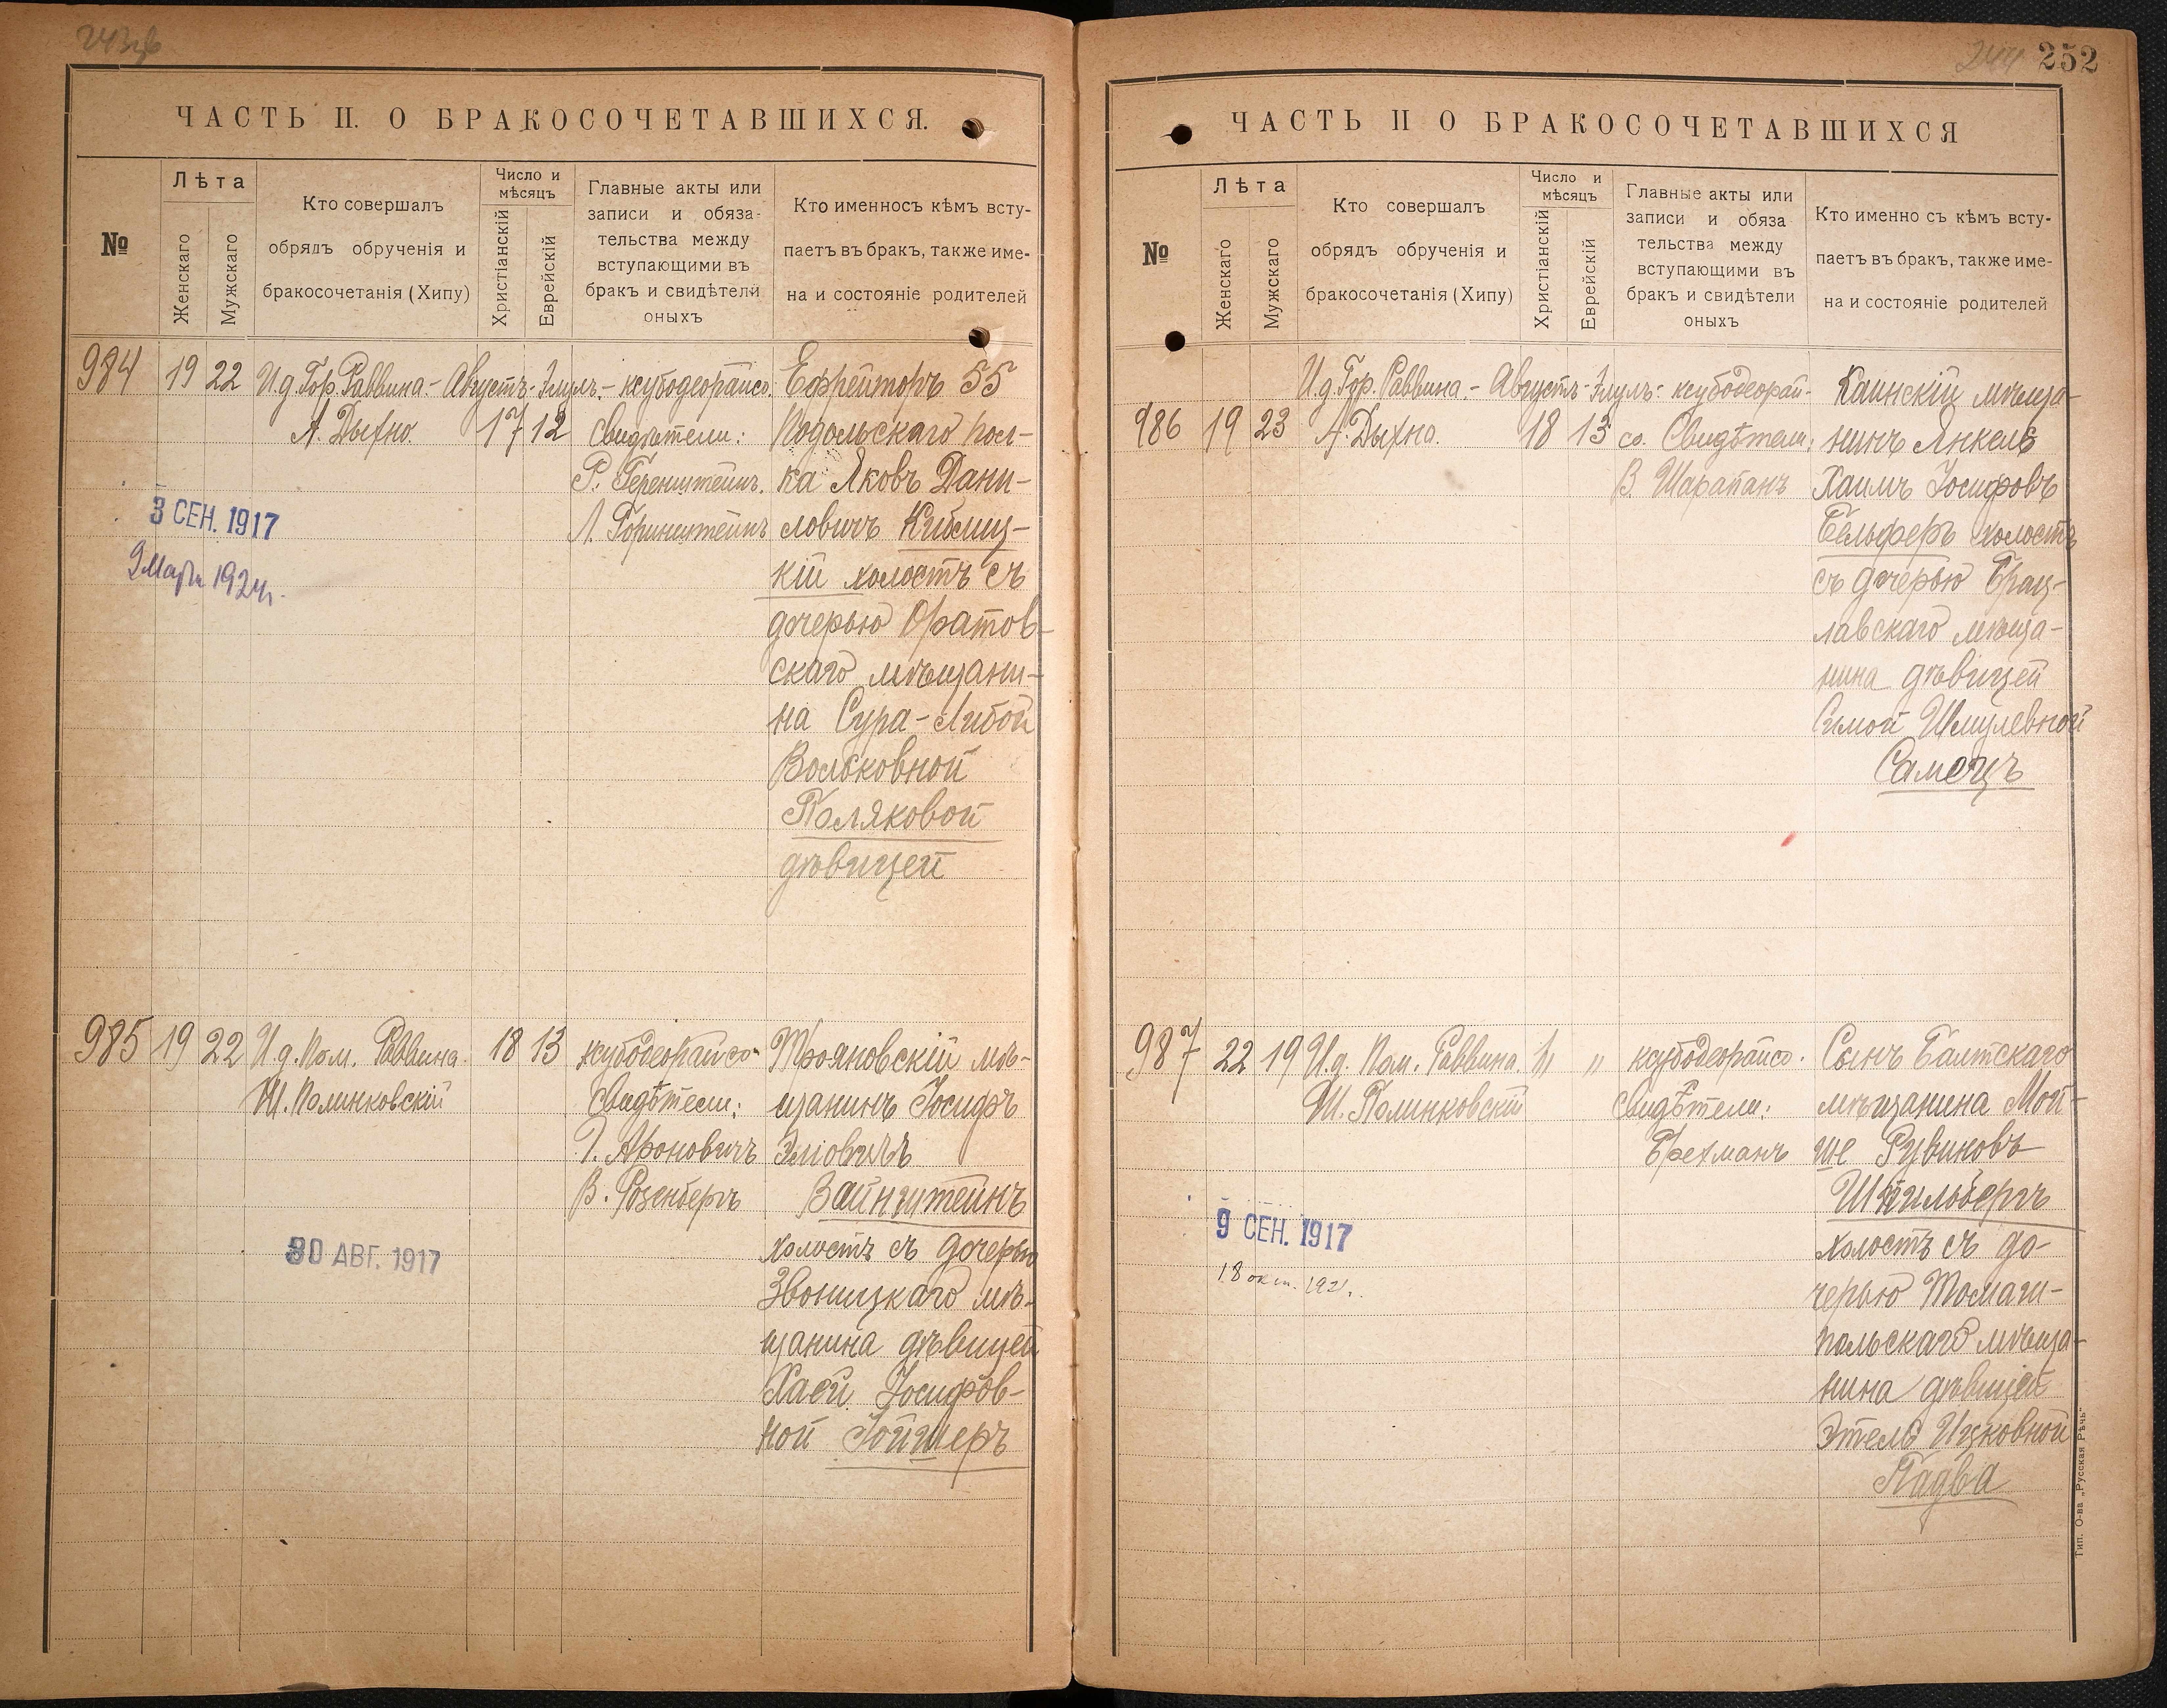 ЧАСТЬ II. О БРАКОСОЧЕТАВШИХСЯ.
№
Лѣта
Женскаго
Мужскаго
Кто совершалъ
обрядъ обрученія и
бракосочетанія (Хипу)
Число и
мѣсяцъ
Христіанскій
Еврейскій
Главные акты или
записи и обяза-
тельства между
вступающими въ
бракъ и свидѣтели
оныхъ
Кто именносъ кѣмъ всту-
паетъ въ бракъ, также име-
на и состояніе родителей
984 19 22 И.д. Гор. Раввина.- Августъ- Элулъ.- ксубодеорайсо.
А. Дыхно. 17 12 Свидѣтели:
Р. Геренштейнъ.
Л. Горинштейнъ
Ефрейторъ 55
Подольскаго пол-
ка Яковъ Дани-
ловичъ Киблиц-
кій холостъ съ
дочерью Оратов-
скаго мѣщани-
на Сура-Либой
Вольковной
Поляковой
дѣвицей
3 СЕН. 1917
9 Мар. 1924г.
985 19 22 И.д. Пом. Раввина. 18 13 ксубодеорайсо-
Ш. Полинковскій
Свидѣтели:
Г. Ароновичъ
В. Розенбергъ
Трояновскій мѣ-
щанинъ Іосифъ
Эліовичъ
Вайнштейнъ
холостъ съ дочерью
Звоницкаго мѣ-
щанина дѣвицей
Хаей Іосифов-
ной Гойшеръ
30 АВГ. 1917
252
ЧАСТЬ II О БРАКОСОЧЕТАВШИХСЯ
№
Лѣта
Женскаго
Мужскаго
Кто совершалъ
обрядъ обрученія и
бракосочетанія (Хипу)
Число и
мѣсяцъ
Христіанскій
Еврейскій
Главные акты или
записи и обяза
тельства между
вступающими въ
бракъ и свидѣтели
оныхъ
Кто именно съ кѣмъ всту-
паетъ въ бракъ, также име-
на и состояніе родителей
И.д. Гор. Раввина.- Августъ- Элулъ- ксубодеорай-
986 19 23 А. Дыхно. 18 13 со. Свидѣтели:
В. Шарапанъ
Каинскій мѣща-
нинъ Янкель
Хаимъ Іосифовъ
Гельферъ холостъ
съ дочерью Брац-
лавскаго мѣща-
нина дѣвицей
Симой Шмулевной
Самецъ
987 22 19 И.д. Пом. Раввина. " " ксубодеорайсо.
Ш. Полинковскій
Свидѣтели:
Брехманъ
Сынъ Балтскаго
мѣщанина Мой-
ше Рувиновъ
Шпильбергъ
холостъ съ до-
черью Томаш-
польскаго мѣща-
нина дѣвицей
Этель Ицковной
Падва
9 СЕН. 1917
18 окт. 1921.
Тип. О-ва „Русская Рѣчь"